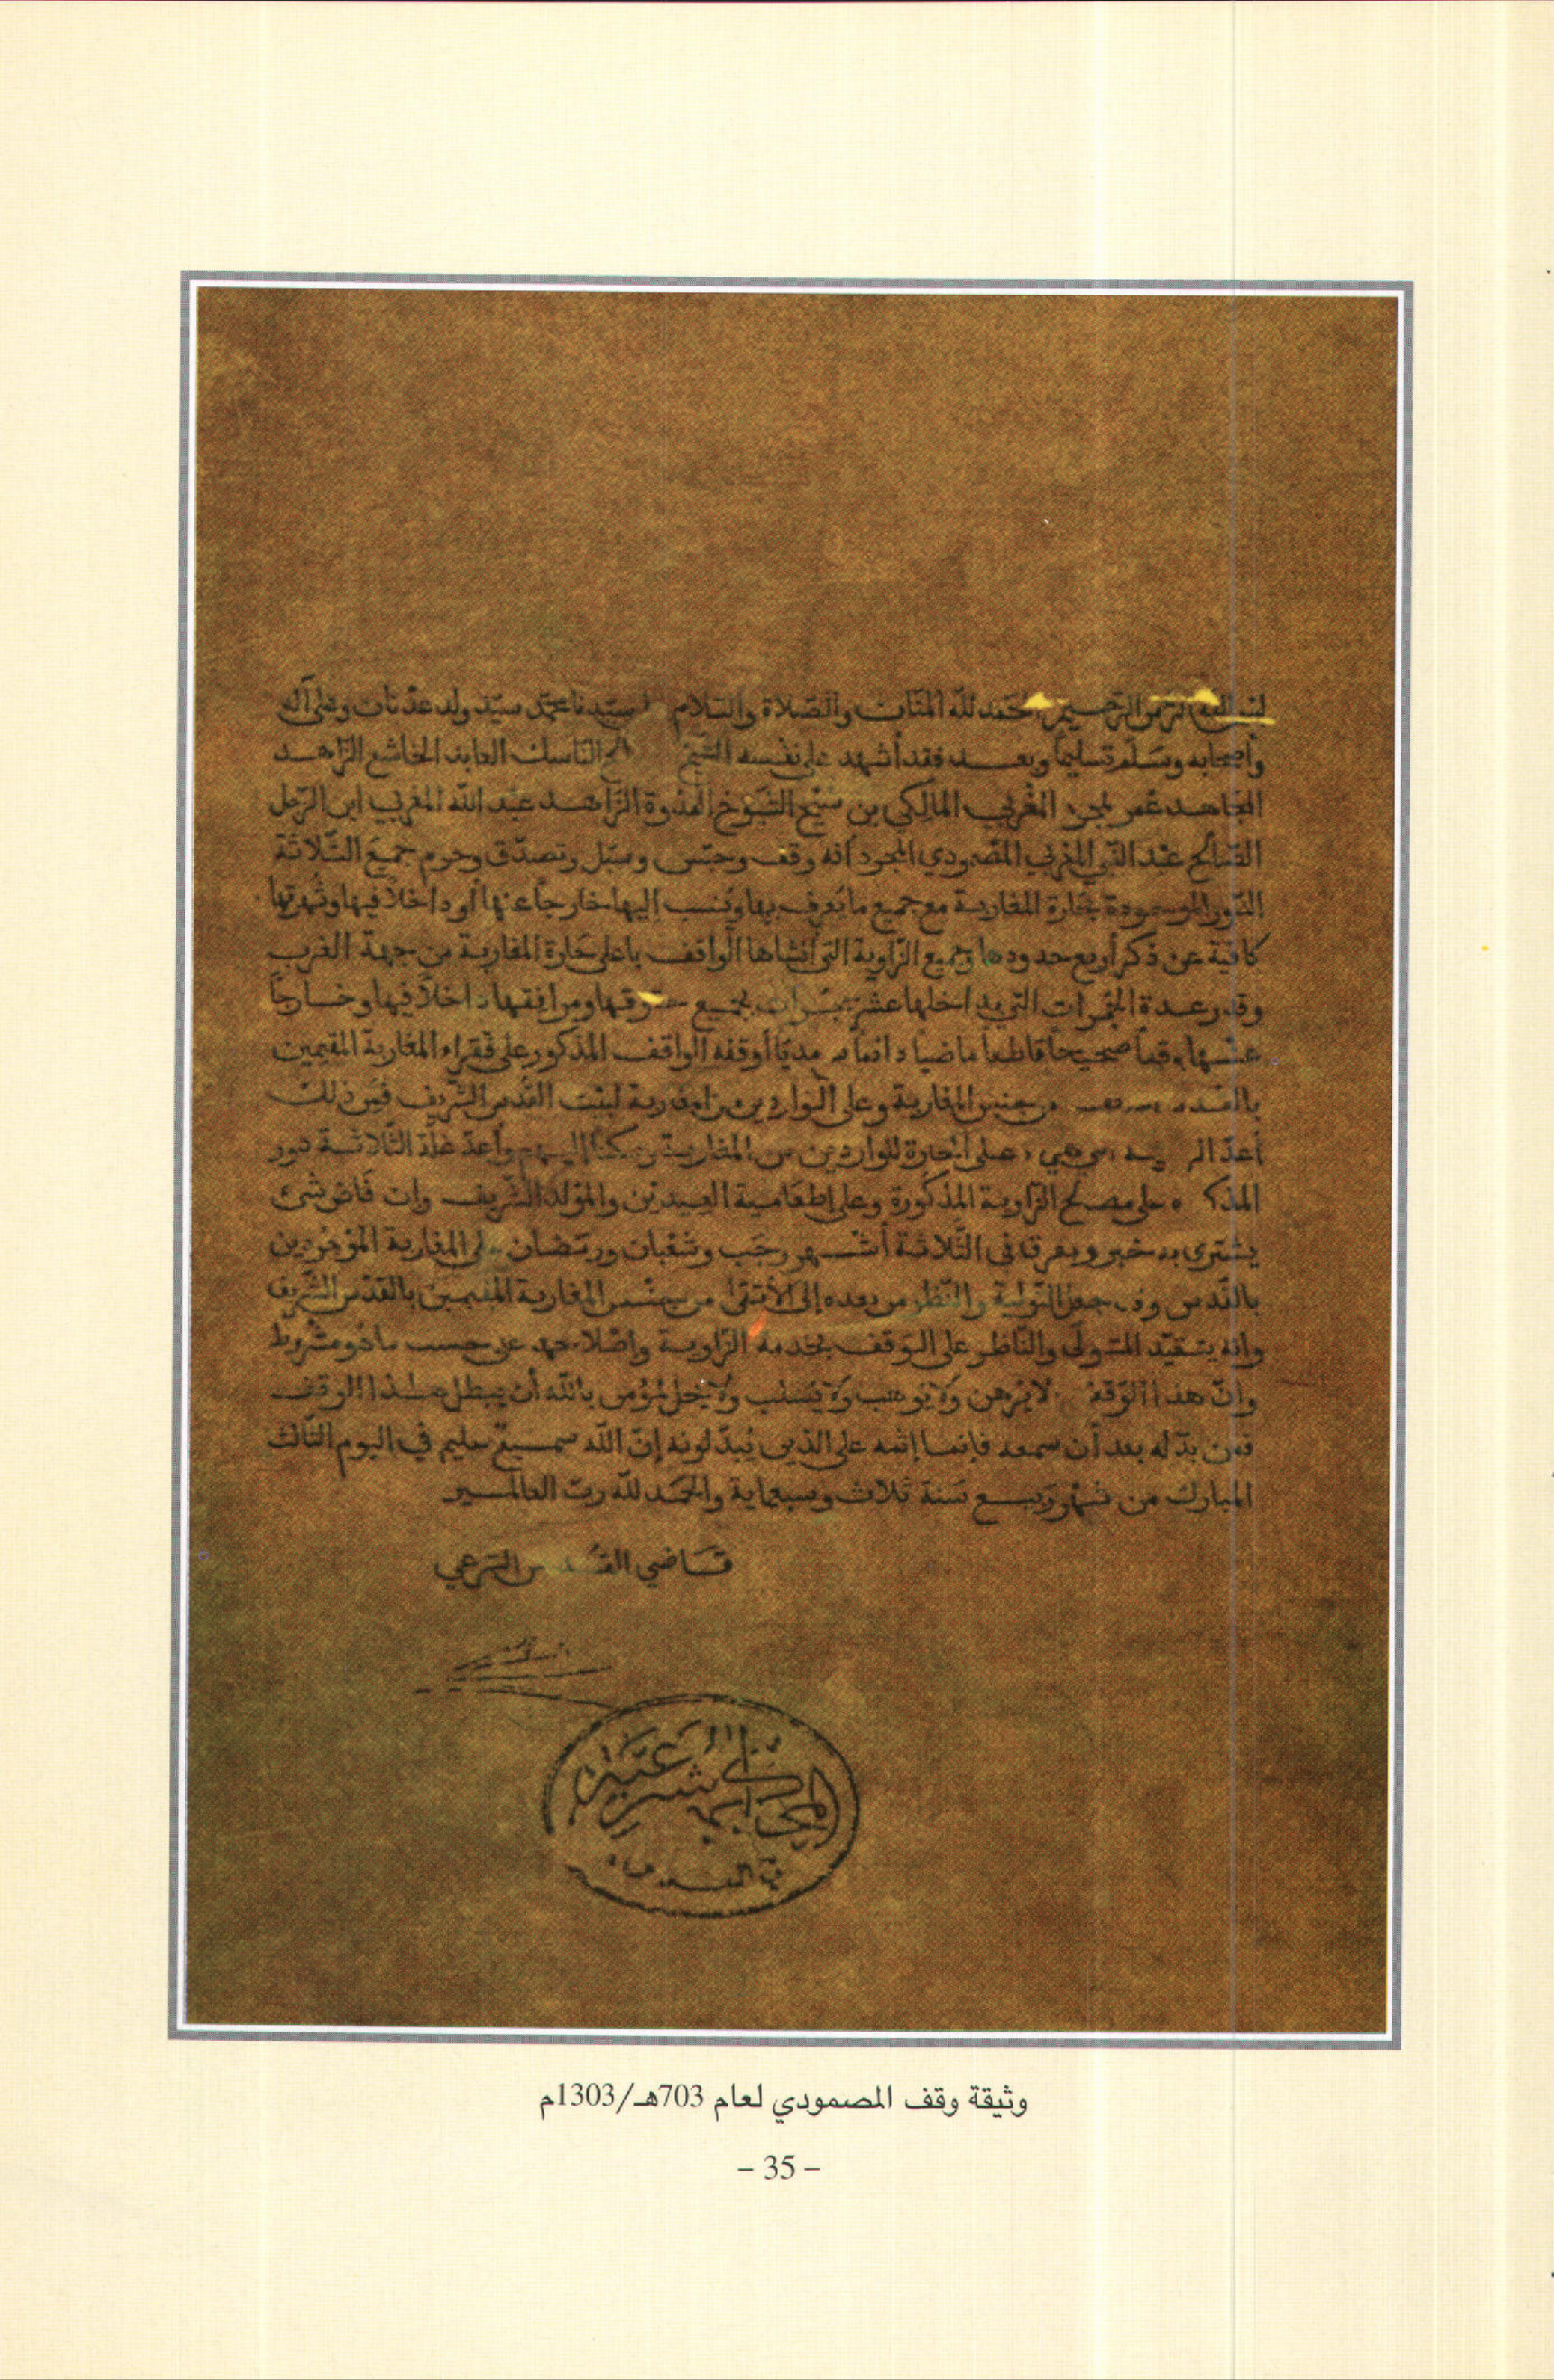 بسم الله الرحمن الرحيم الحمد لله المنّان والصّلاة والسّلام سيّدنا محمّد سيّد ولد عدنان وعلى آله
وأصحابه وسلّم تسليماً وبعد فقد أشهد على نفسه الشّيخ النّاسك العابد الخاشع الزّاهد
المجاهد عمر المغربي المالكي بن شيخ الشّيوخ القدوة الزّاهد عبد الله المغربي ابن الرّجل
الصّالح عبد النّبي المغربي المصّمودي المجرد أنه وقف وحبّس وسبّل وتصدّق وحرم جميع الثّلاثة
الدّور الموجودة بحارة المغاربة مع جميع ما يعرف بها وينسب إليها خارجاً عنها أو داخلاً فيها وشهرتها
كافية عن ذكر أربع حدودها وجميع الزّاوية التي أنشاها الواقف باعلى حارة المغاربة من جهة الغرب
وقدر عدة الحجرات التي بداخلها عشر حجرات بجميع حقوقها ومرافقها داخلاً فيها وخارجاً
عنها وقفاً صحيحاً قاطعاً ماضياً دائماً أوقفه الواقف المذكور على فقراء المغاربة المقيمين
من جنس المغاربة وعلى الواردين من المغاربة القدس الشّريف فمن ذلك
أعدّ على الحارة للواردين من المغاربة وأعدّ غلّة الثّلاثة دور
على مصالح الزّاوية المذكورة وعلى إطعامية العيدين والمولد الشّريف وان فاض شيء
يشترى به خبز ويفرق في الثّلاثة أشهر رجب وشعبان ورمضان على المغاربة الموجودين
بالقدس وقد جعل التّولية والنّظر من بعده إلى الأتقى من جنس المغاربة المقيمين بالقدس الشّريف
وانه يتقيّد المتولّى والنّاظر على الوقف بخدمة الزّاوية واصلاحه على حسب ما هو مشروط
وانّ هذا الوقف لا يرهن ولا يوهب ولا يسلب ولا يحل لمؤمن بالله أن يبطل هذا الوقف
فمن بدّله بعد أن سمعه فإنما إثمه على الذين يبدّلونه إنّ الله سميع عليم في اليوم الثّالث
المبارك من شهر ربيع سنة ثلاث وسبعماية والحمد لله ربّ العالمين
قاضي القدس الشرعي
وثيقة وقف المصمودي لعام 703هـ/1303م
– 35 –